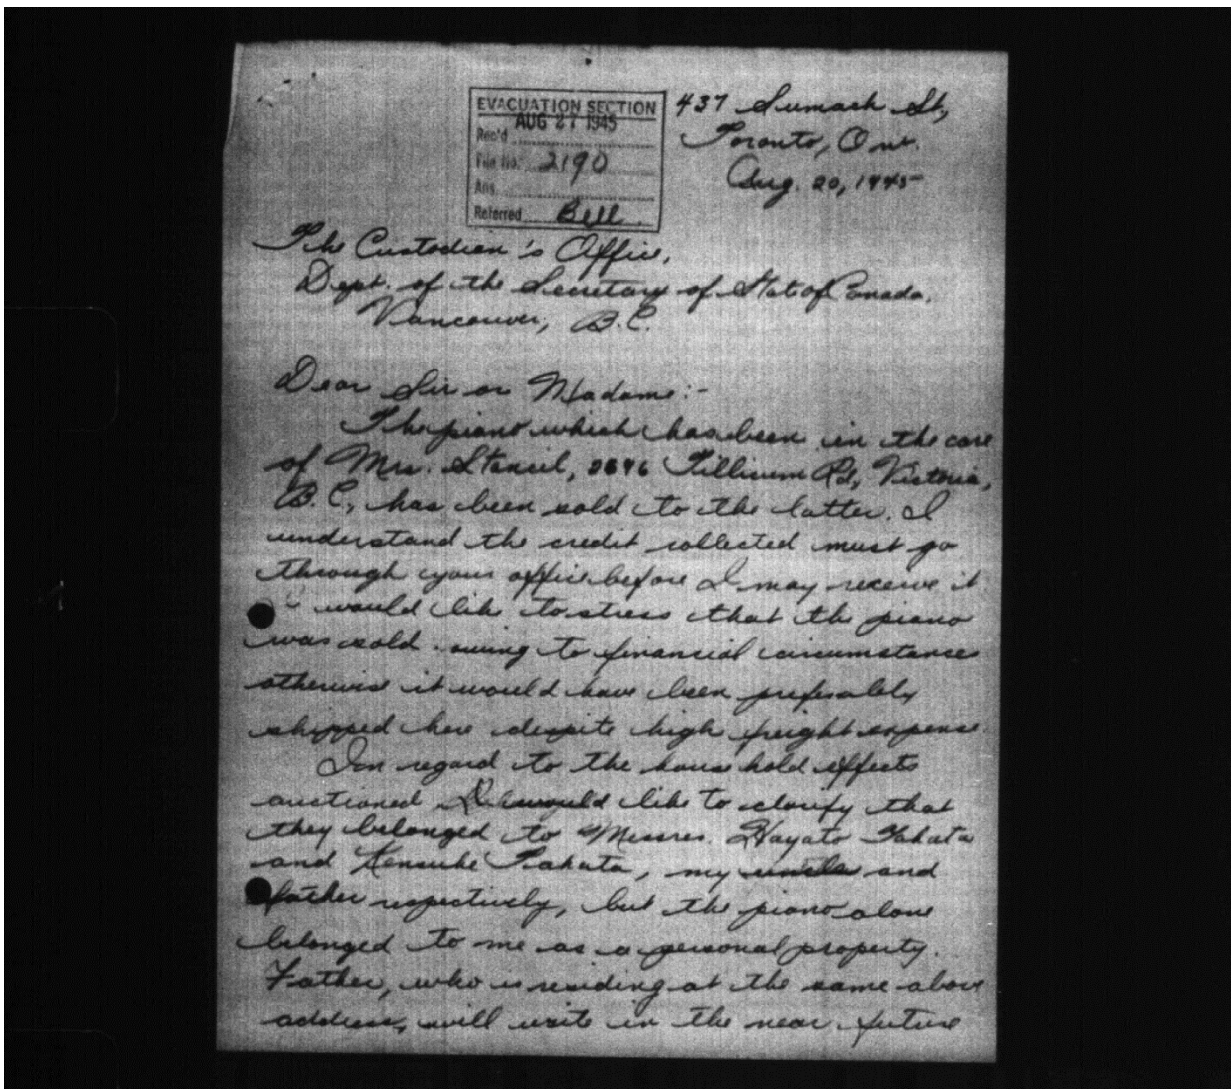 EVACUATION SECTION
AUG 27 1945
Rec'd
File No. 2190
Ans.
Referred Bell
437 Sumach St,
Toronto, Ont.
Aug. 20, 1945
The Custodian's Office,
Dept. of the Secretary of Stat of Canada,
Vancouver, B.C.
Dear Sir or Madame:-
The piano which has been in the care
of Mrs. Stancil, Tillicum Rd, Victoria,
B.C., has been sold to the latter. I
understand the credit collected must go
through your office before I may receive it
I would like to stress that the piano
was sold owing to financial circumstance
otherwise it would have been preferably
shipped here despite high freight expense.
In regard to the household effects
auctioned I would like to clarify that
they belonged to Messres. Hayato Takata
and Kensuke Takata, my uncle and
father respectively, but the piano alone
belonged to me as a personal property.
Father, who is residing at the same above
address, will write in the near future